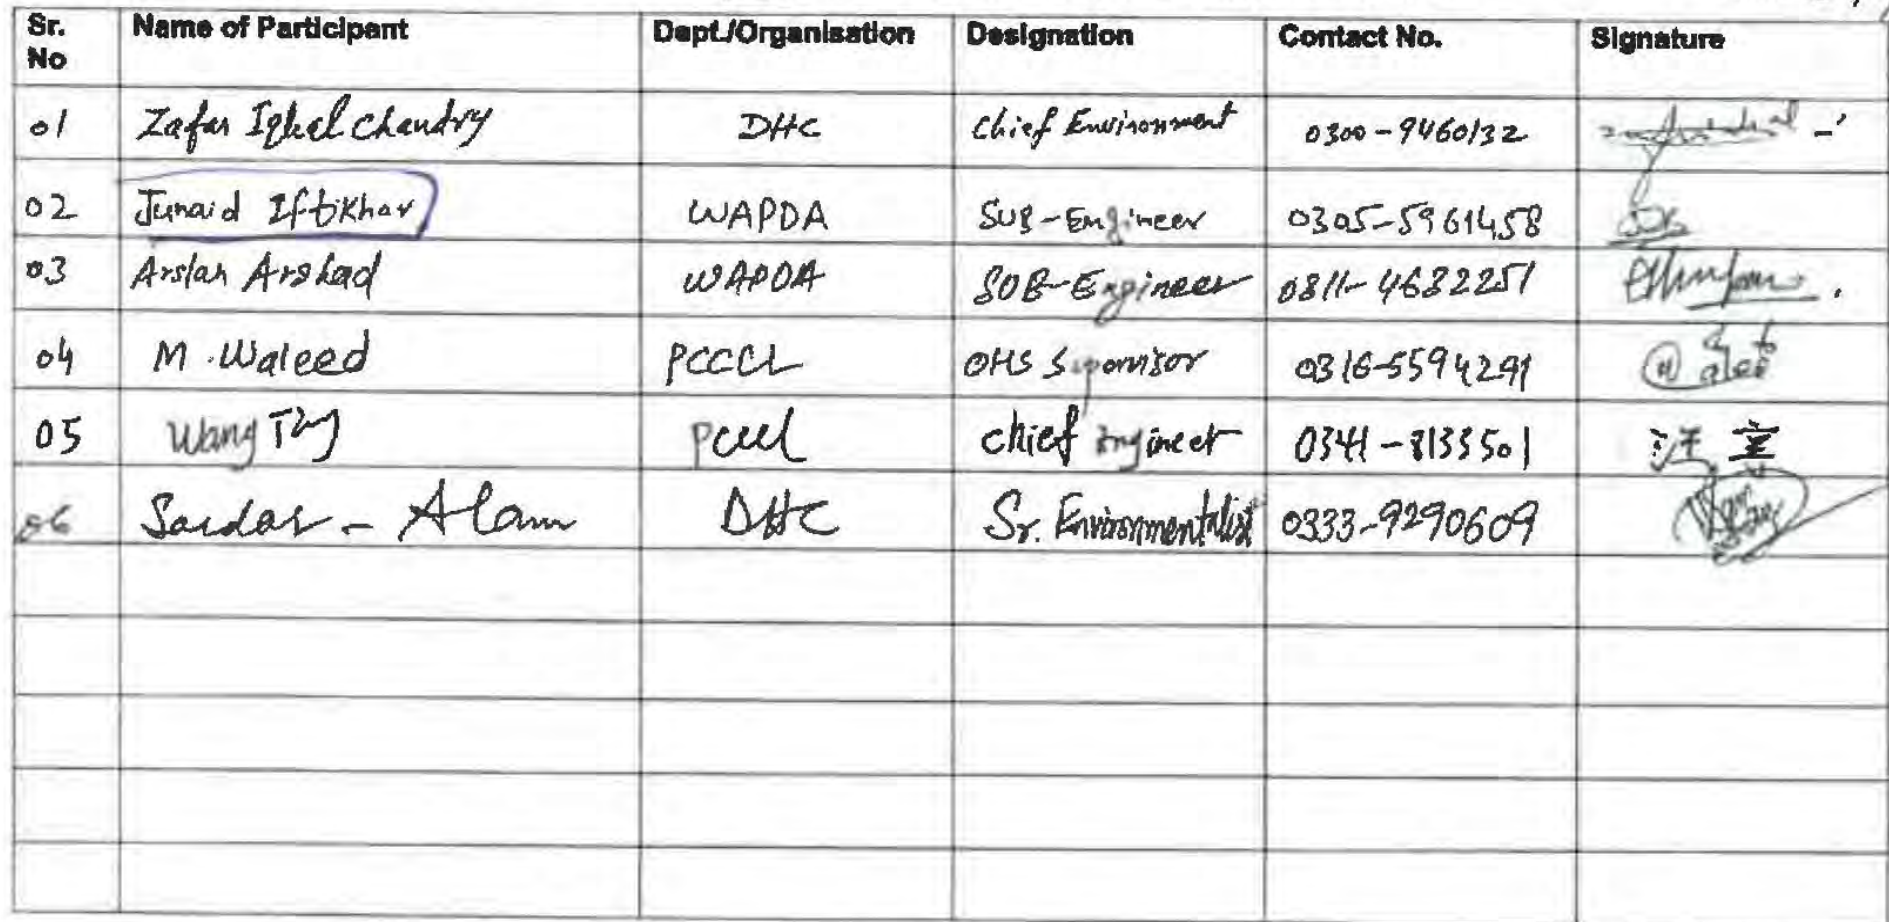 Sr. No Name of Participant Dept./Organisation Designation Contact No. Signature
01 Zafar Iqbal Chaudry DHC Chief Environment 0300-9460132
02 Junaid Iftikhar WAPDA SUB-Engineer 0305-5961458
03 Arslan Arshad WAPDA SUB-Engineer 0311-4632251
04 M. Waleed PCCCL OHS Supervisor 0316-5594291
05 Wang chief Engineer 0341-8133501 汪
06 Sardar - Alam DHC Sr. Environmentalist 0333-9290609